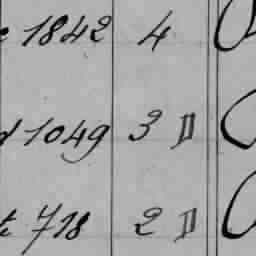 1842 4
d 1049 3 D
718 2 D